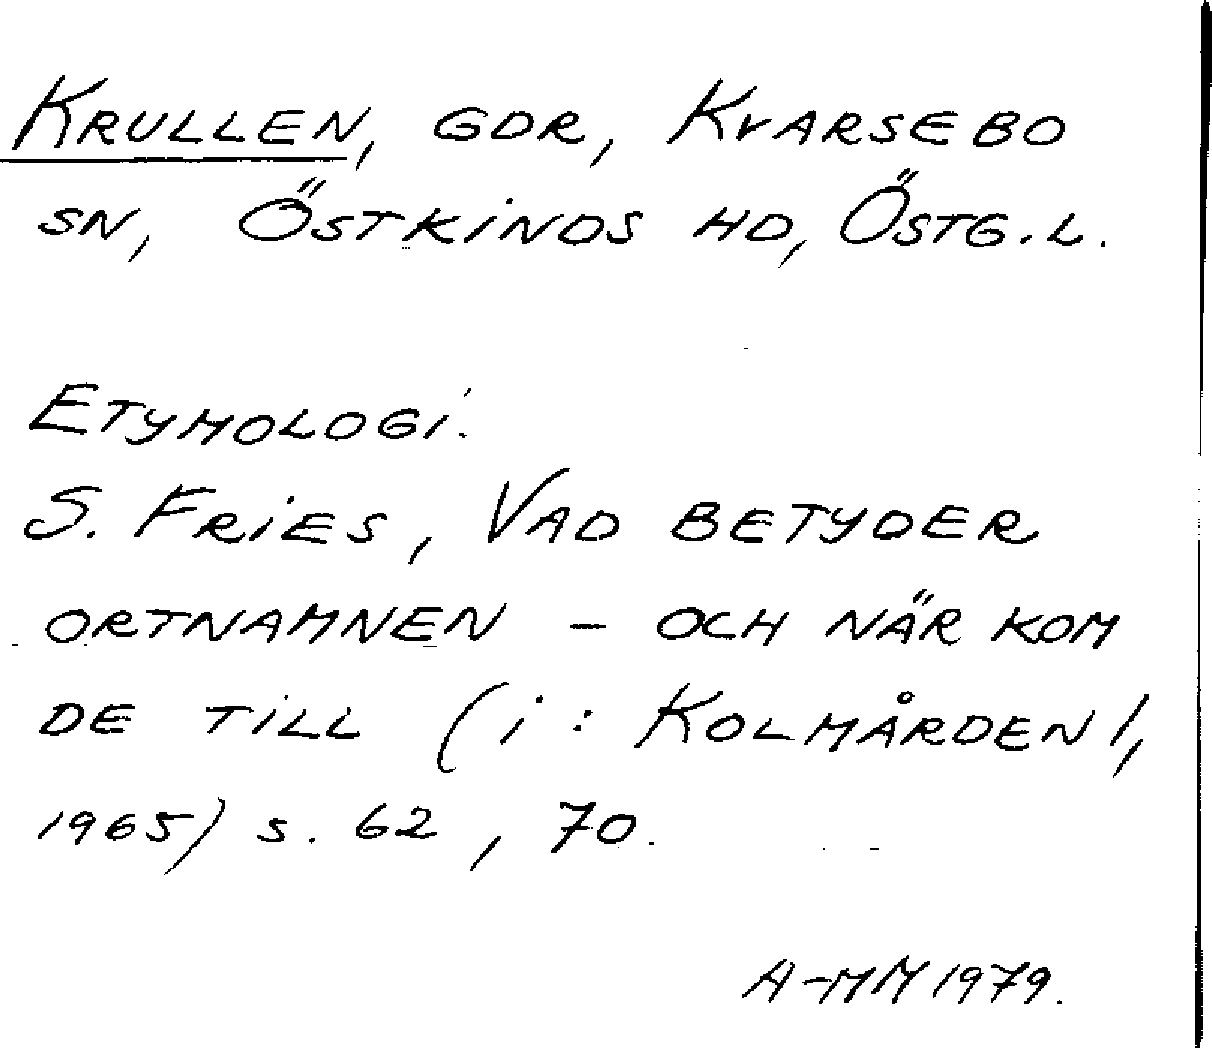 KRULLEN, GDR, KVARSEBO
SN, ÖSTKINDS HD, ÖSTG.L.
ETYMOLOGI:
S. FRIES, VAD BETYDER
ORTNAMNEN – OCH NÄR KOM
DE TILL (i: KOLMÅRDEN 1,
1965) s. 62, 70.
A-MM 1979.